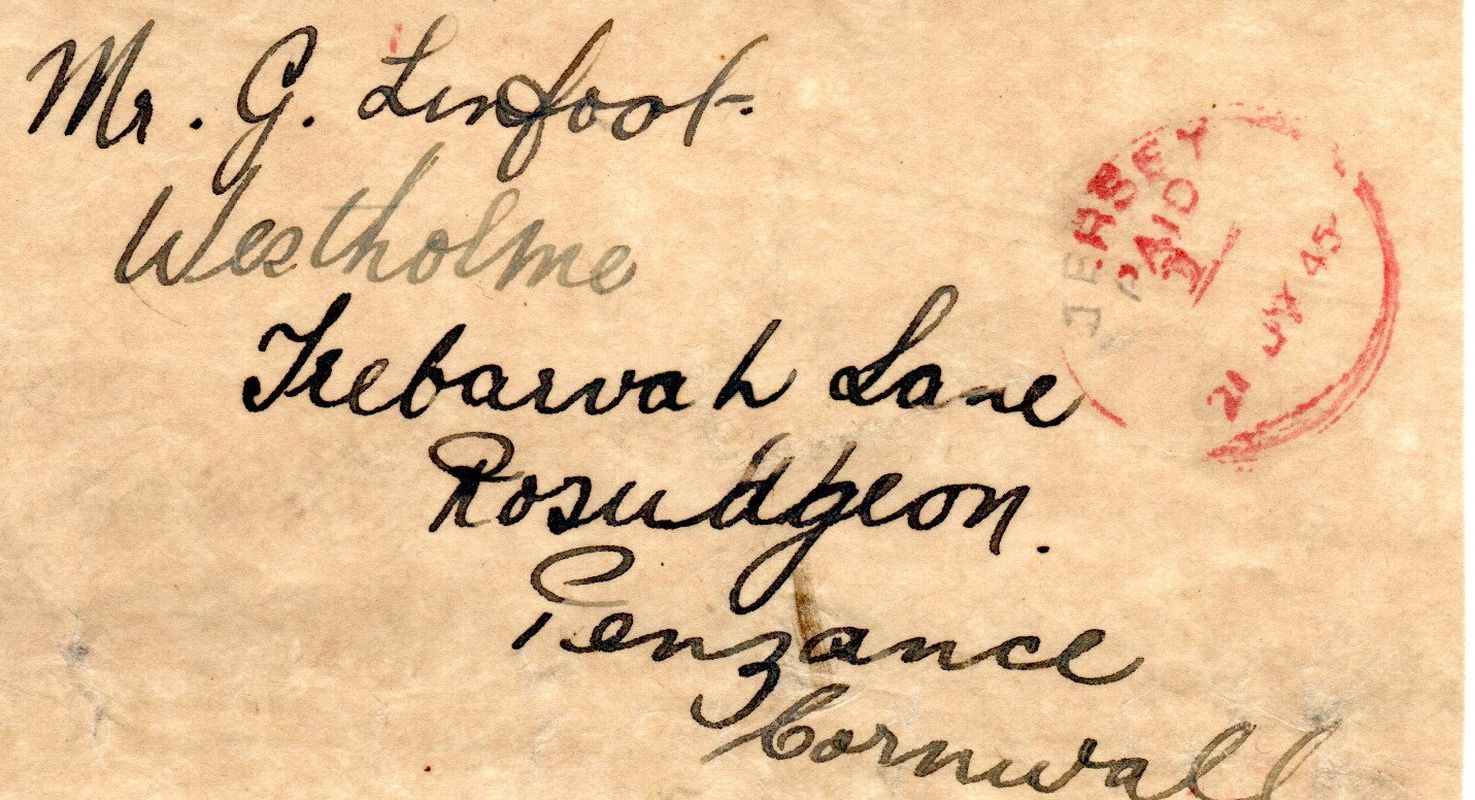 Mr. G. Linfoot.
Westholme
Trebarvah Lane
Rosudgeon.
Penzance
Cornwall
JERSEY
PAID
21 JY 45